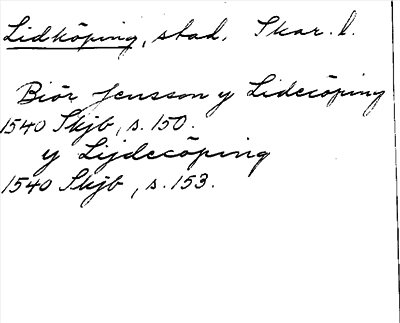 Lidköping, stad. Skar. l.
Biör Jensson y Lidecöping
1540 Skjb, s. 150.
y Lijdecöping
1540 Skjb, s. 153.